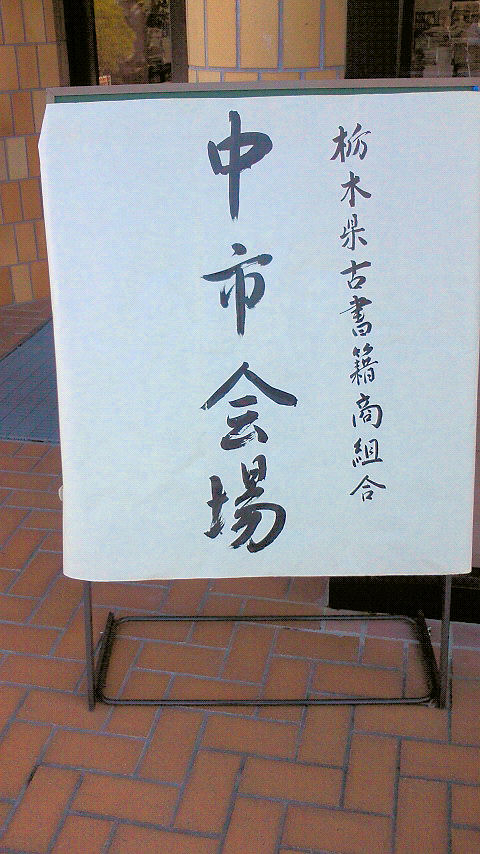 栃木県古書籍商組合
中市会場